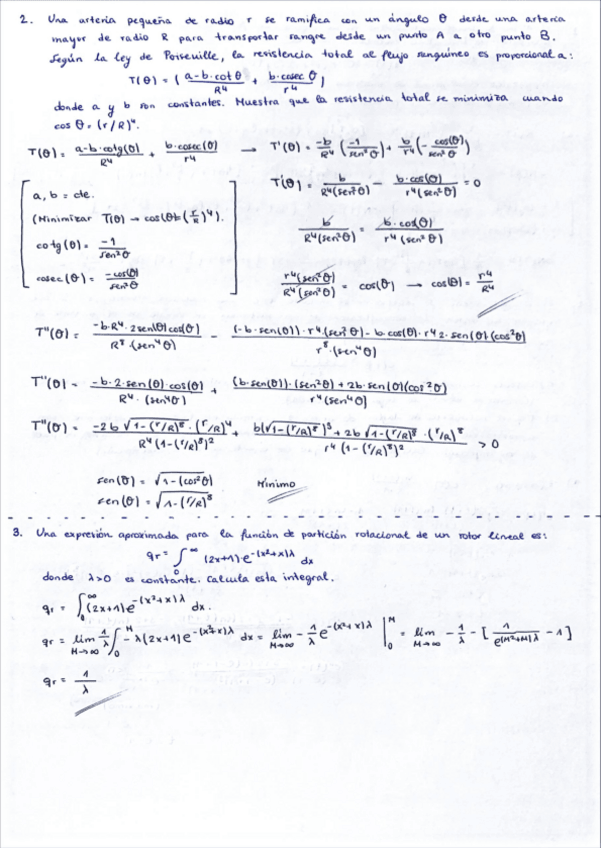 2. Una arteria pequeña de radio r se ramifica con un ángulo θ desde una arteria
mayor de radio R para transportar sangre desde un punto A a otro punto B.
Según la ley de Poiseuille, la resistencia total al flujo sanguíneo es proporcional a:
T(θ) = ( (a-b·cotθ)/R⁴ + (b·cosecθ)/r⁴ )
donde a y b son constantes. Muestra que la resistencia total se minimiza cuando
cosθ = (r/R)⁴.
T(θ) = (a-b·cotg(θ))/R⁴ + (b·cosec(θ))/r⁴ → T'(θ) = -b/R⁴ (-1/sen²θ) + b/r⁴ (- cos(θ)/sen²θ)
a, b = cte.
(Minimizar T(θ) → cos(θ) = (r/R)⁴).
cotg(θ) = -1/sen²θ
cosec(θ) = -cos(θ)/sen²θ
T(θ) = b/(R⁴(sen²θ)) - b·cos(θ)/(r⁴(sen²θ)) = 0
b/(R⁴(sen²θ)) = b·cos(θ)/(r⁴(sen²θ))
r⁴(sen²θ)/(R⁴(sen²θ)) = cos(θ) → cos(θ) = r⁴/R⁴
T''(θ) = (-b·R⁴·2sen(θ)cos(θ))/(R⁸·(sen⁴θ)) - ((-b·sen(θ))·r⁴(sen²θ) - b·cos(θ)·r⁴2·sen(θ)(cos²θ))/(r⁸·(sen⁴θ))
T''(θ) = (-b·2·sen(θ)·cos(θ))/(R⁴·(sen⁴θ)) + ((b·sen(θ))·(sen²θ) + 2b·sen(θ)(cos²θ))/(r⁴(sen⁴θ))
T''(θ) = (-2b√(1-(r/R)⁸·(r/R)⁴)/(R⁴(1-(r/R)⁸)²) + (b(√(1-(r/R)⁸)³ + 2b√(1-(r/R)⁸)·(r/R)⁸)/(r⁴(1-(r/R)⁸)²) > 0
sen(θ) = √(1-(cos²θ) Mínimo
sen(θ) = √(1-(r/R)⁸
3. Una expresión aproximada para la función de partición rotacional de un rotor lineal es:
qr = ∫₀^∞ (2x+1)·e^(-(x²+x)λ) dx
donde λ>0 es constante. Calcula esta integral.
qr = ∫₀^∞ (2x+1)e^(-(x²+x)λ) dx.
qr = lim M→∞ 1/λ ∫₀^M -λ(2x+1)e^(-(x²+x)λ) dx = lim M→∞ - 1/λ e^(-(x²+x)λ) |₀^M = lim M→∞ - 1/λ - [ 1/e^((M²+M)λ) - 1 ]
qr = 1/λ